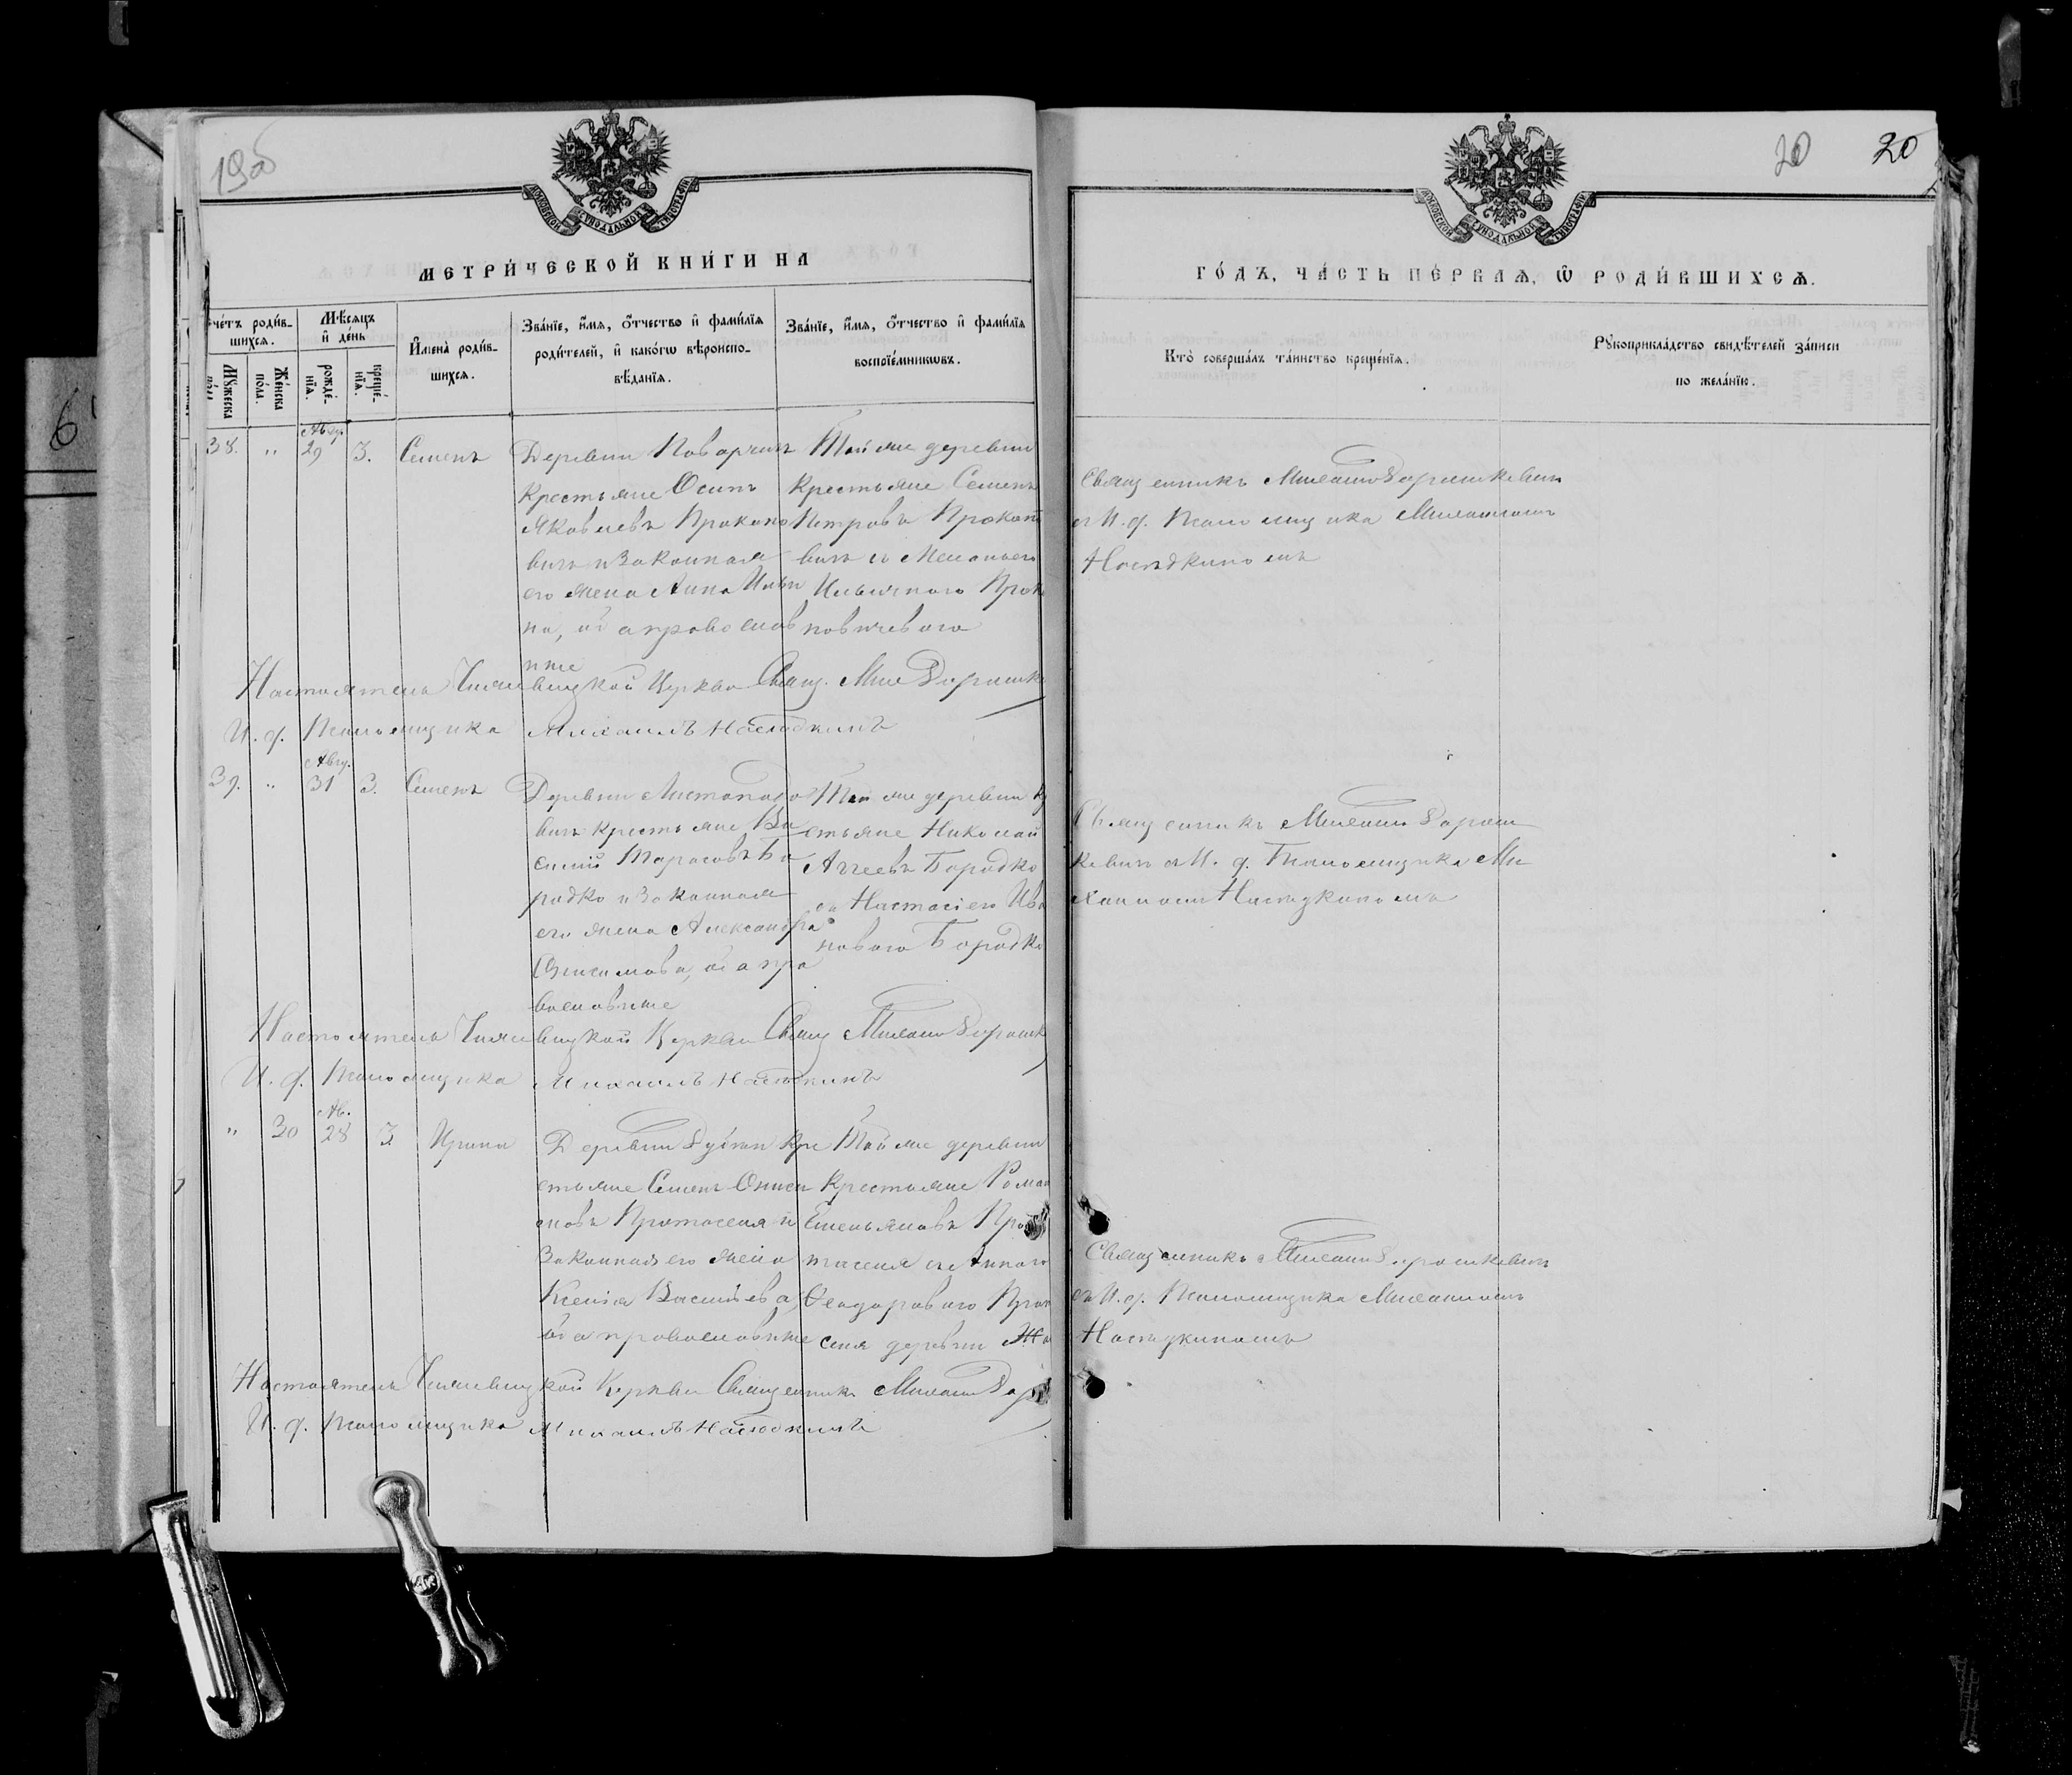 19об
20 20
МОСКОВСКОЙ СѴНОДАЛЬНОЙ ТИПОГРАФІИ
МЕТРИ́ЧЕСКОЙ КНИ́ГИ НА
Сче́тъ роди́в-
шихся.
Мѣ́сяцъ
и҆ де́нь
Мꙋ́жеска
по́ла.
Же́нска
по́ла.
рожде́-
нїя.
креще́-
нїя.
И҆мена̀ роди́в-
шихся.
Зва́нїе, и҆́мя, ѻ҆́тчество и҆ фами́лїя
роди́телей, и҆ како́гѡ вѣроиспо-
вѣ́данїя.
Зва́нїе, и҆́мя, ѻ҆́тчество и҆ фами́лїя
воспрїе́мникѡвъ.
38. " Авгу. 29 3. Семенъ
Деревни
Крестьяне Осипъ
Яковлевъ Прокопо
вичъ и Законная
его жена Анна Ильи
на, оба православ
ные
Той же деревни
Крестьяне Семенъ
Петровъ Прокопо
вичъ и
Ильиична
Настоятель церкви Свящ. Мих Дорошке
И. д. Псаломщика Михаилъ Наследкинъ
39. " Авгу. 31 3. Семенъ
Деревни Листопадо
вичъ крестьяне Ва
силий Тарасовъ Бо
родко и Законная
его жена Александра
Онисимова, оба пра
вославные
Той же деревни кр
стьяне Николай
Бородко
и Настасiя Ива
нова Бородко
Настоятель церкви Свящ Михаилъ Дорошк
И. д. Псаломщика Михаилъ Наследкинъ
" 30 Ав. 28 3 Ирина
Деревни кре
стьяне Семенъ Ониси
мовъ Протасеня и
Законная его жена
Ксенiя Васильева,
оба православные
Той же деревни
Крестьяне Роман
Емельяновъ Про
тасеня и Анна
Ѳеодорова Прота
сеня деревни
Настоятель церкви Священникъ Михаилъ Дор
И. д. Псаломщика Михаилъ Наследкинъ
МОСКОВСКОЙ СѴНОДАЛЬНОЙ ТИПОГРАФІИ
ГО́ДЪ, ЧА́СТЬ ПЕ́РВАЯ, Ѡ҆ РОДИ́ВШИХСЯ.
Кто̀ соверша́лъ та́инство креще́нїя.
Рꙋкоприкла́дство свидѣ́телей за́писи
по жела́нїю.
Священникъ Михаилъ Дорошкевичъ
съ И. д. Псаломщика Михаиломъ
Наследкиномъ
Священникъ Михаилъ Дорош
кевичъ съ И. д. Псаломщика Ми
хаиломъ Наследкиномъ
Священникъ Михаилъ Дорошкевичъ
съ И. д. Псаломщика Михаиломъ
Наследкиномъ